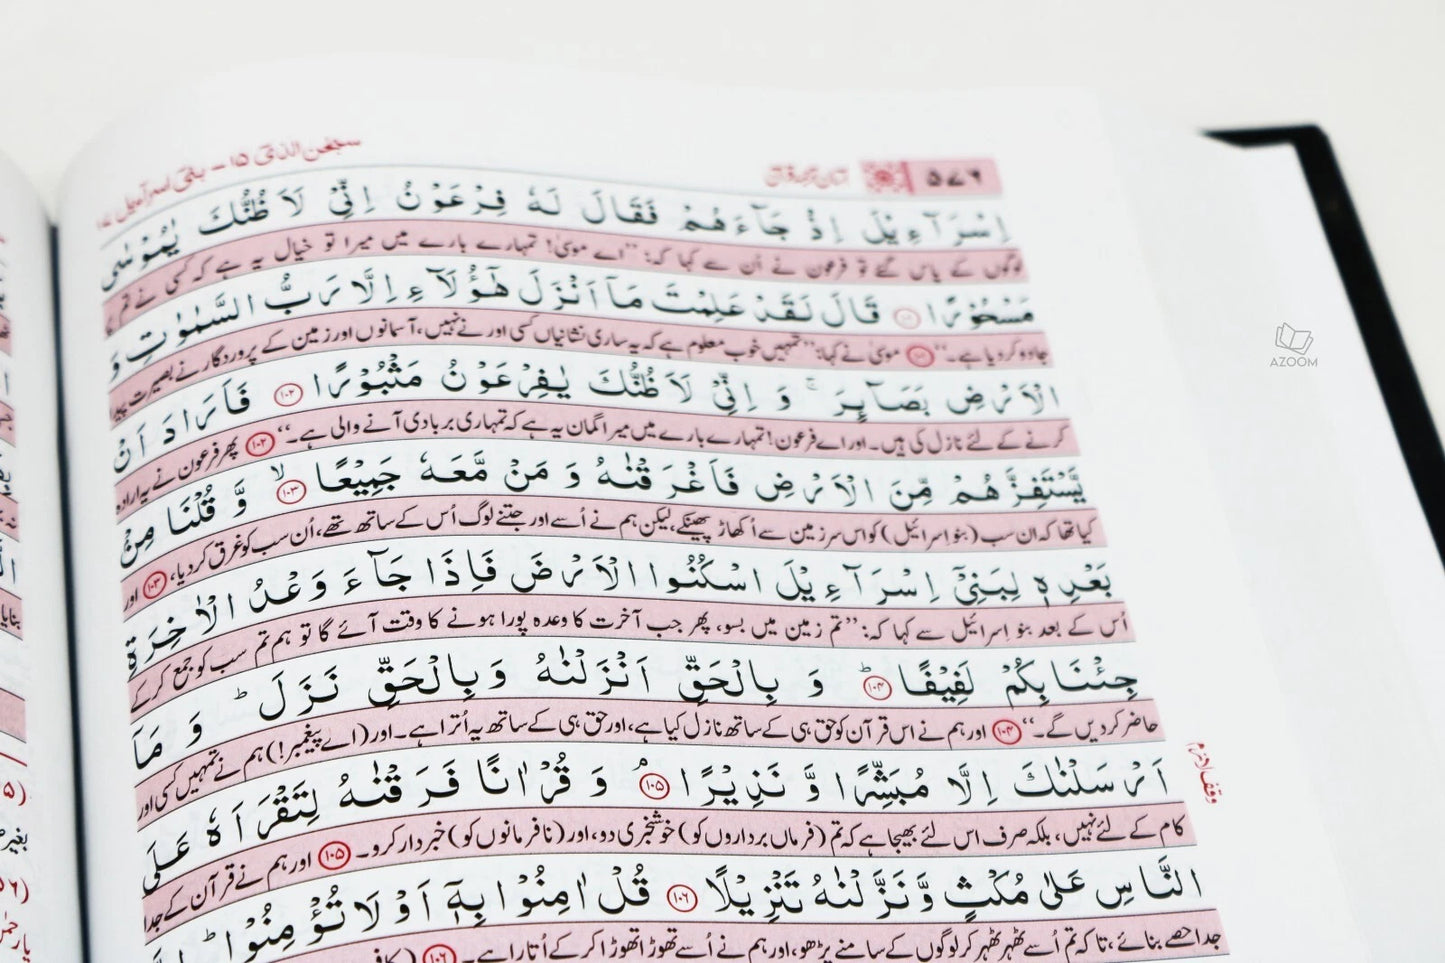 ۵۷۶ آسان ترجمۂ قرآن
سبحٰن الذیٓ ۱۵ – بنیٓ اسرآءیل ۱۷
اِسْرَآءِیْلَ اِذْ جَآءَهُمْ فَقَالَ لَهٗ فِرْعَوْنُ اِنِّیْ لَاَظُنُّكَ یٰمُوْسٰى
لوگوں کے پاس گئے تو فرعون نے اُن سے کہا کہ: ’’اے موسیٰ! تمہارے بارے میں میرا تو خیال یہ ہے کہ کسی نے تم
مَسْحُوْرًا ۱۰۱ قَالَ لَقَدْ عَلِمْتَ مَاۤ اَنْزَلَ هٰۤؤُلَآءِ اِلَّا رَبُّ السَّمٰوٰتِ وَ
جادو کردیا ہے۔‘‘ ۱۰۱ موسیٰ نے کہا: ’’تمہیں خوب معلوم ہے کہ یہ ساری نشانیاں کسی اور نے نہیں، آسمانوں اور زمین کے پروردگار نے بصیرت پیدا
الْاَرْضِ بَصَآىِٕرَ ۚ وَ اِنِّیْ لَاَظُنُّكَ یٰفِرْعَوْنُ مَثْبُوْرًا ۱۰۲ فَاَرَادَ اَنْ
کرنے کے لئے نازل کی ہیں۔ اور اے فرعون! تمہارے بارے میں میرا گمان یہ ہے کہ تمہاری بربادی آنے والی ہے۔‘‘ ۱۰۲ پھر فرعون نے یہ ارادہ
یَّسْتَفِزَّهُمْ مِّنَ الْاَرْضِ فَاَغْرَقْنٰهُ وَ مَنْ مَّعَهٗ جَمِیْعًا ۱۰۳ ۙ وَّ قُلْنَا مِنْۢ
کیا تھا کہ ان سب (بنو اسرائیل) کو اس سرزمین سے اُکھاڑ پھینکے، لیکن ہم نے اُسے اور جتنے لوگ اُس کے ساتھ تھے، اُن سب کو غرق کردیا، ۱۰۳ اور
بَعْدِهٖ لِبَنِیْۤ اِسْرَآءِیْلَ اسْكُنُوا الْاَرْضَ فَاِذَا جَآءَ وَعْدُ الْاٰخِرَةِ
اُس کے بعد بنو اسرائیل سے کہا کہ: ’’تم زمین میں بسو، پھر جب آخرت کا وعدہ پورا ہونے کا وقت آئے گا تو ہم تم سب کو جمع کرکے
جِئْنَا بِكُمْ لَفِیْفًا ؕ ۱۰۴ وَ بِالْحَقِّ اَنْزَلْنٰهُ وَ بِالْحَقِّ نَزَلَ ؕ وَ مَاۤ
حاضر کردیں گے۔‘‘ ۱۰۴ اور ہم نے اس قرآن کو حق ہی کے ساتھ نازل کیا ہے، اور حق ہی کے ساتھ یہ اُترا ہے۔ اور (اے پیغمبر!) ہم نے تمہیں کسی اور
اَرْسَلْنٰكَ اِلَّا مُبَشِّرًا وَّ نَذِیْرًا ۱۰۵ ۘ وَ قُرْاٰنًا فَرَقْنٰهُ لِتَقْرَاَهٗ عَلَى
وقف لازم
کام کے لئے نہیں، بلکہ صرف اس لئے بھیجا ہے کہ تم (فرماں برداروں کو) خوشخبری دو، اور (نافرمانوں کو) خبردار کرو۔ ۱۰۵ اور ہم نے قرآن کے جدا
النَّاسِ عَلٰى مُكْثٍ وَّ نَزَّلْنٰهُ تَنْزِیْلًا ۱۰۶ قُلْ اٰمِنُوْا بِهٖۤ اَوْ لَا تُؤْمِنُوْا ؕ
جدا حصے بنائے، تاکہ تم اُسے ٹھہر ٹھہر کر لوگوں کے سامنے پڑھو، اور ہم نے اُسے تھوڑا تھوڑا کرکے اُتارا ہے۔ ۱۰۶
AZOOM